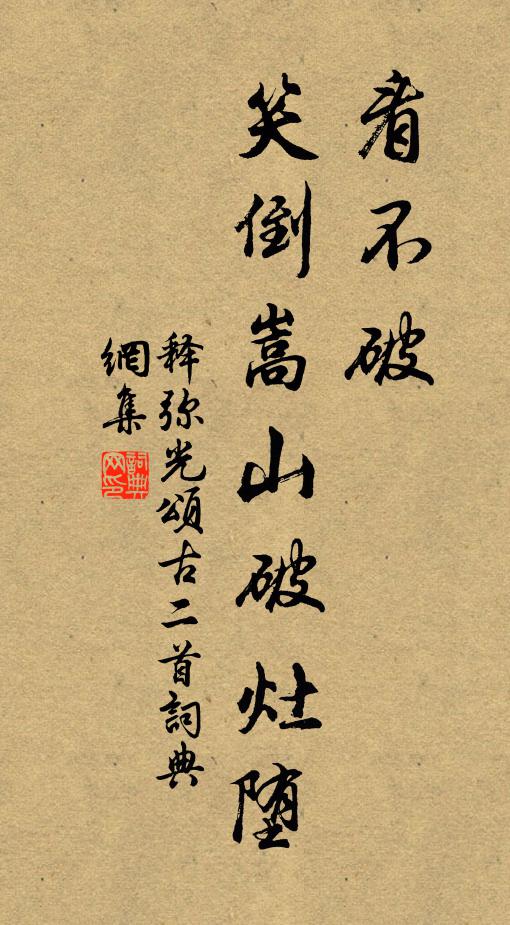 看不破
笑倒嵩山破灶堕
释弥光頌古二首詞典
網集
詞典网印